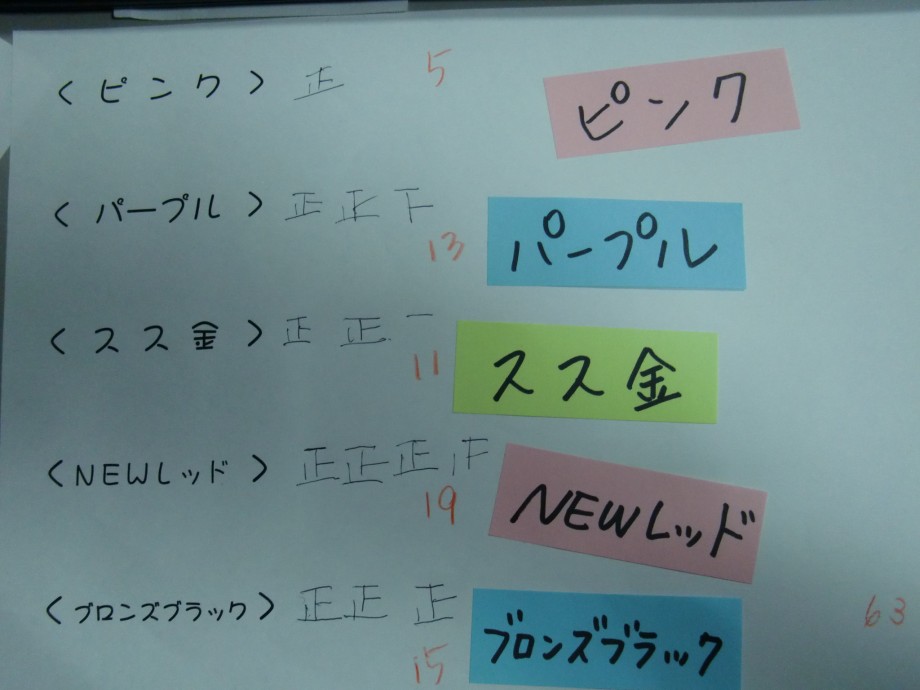 〈ピンク〉 正 5 ピンク
〈パープル〉 正 正 下 13 パープル
〈スス金〉 正 正 一 11 スス金
〈NEWレッド〉 正 正 正 正 19 NEWレッド
〈ブロンズブラック〉 正 正 正 15 ブロンズブラック
63